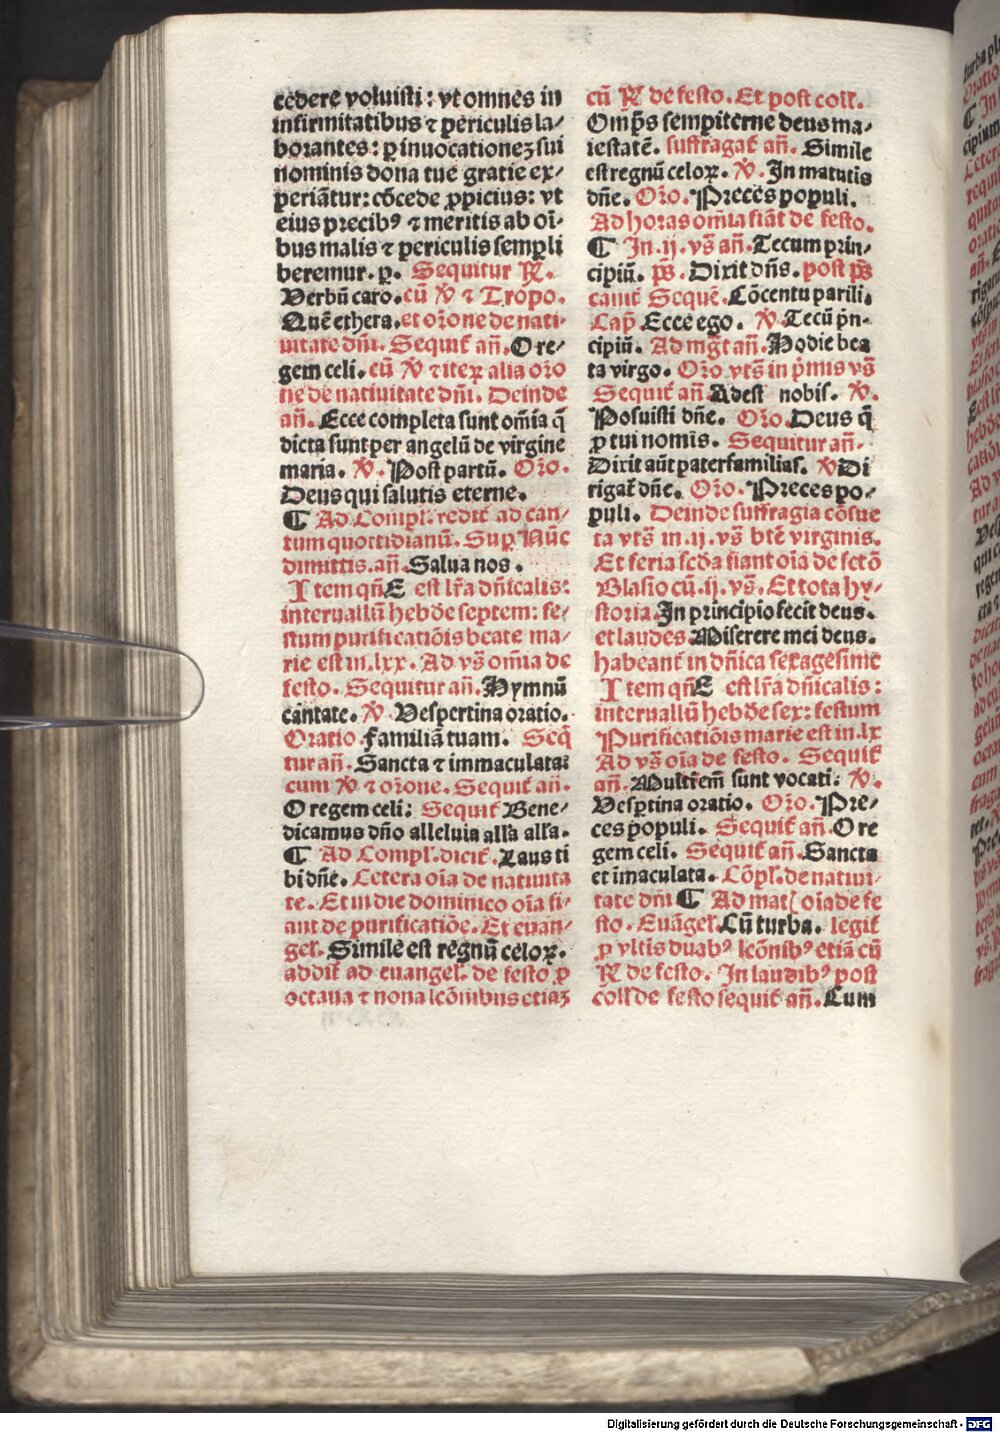 cedere voluisti: vt omnes in
infirmitatibus ⁊ periculis la⸗
borantes: ꝑ inuocationeꝫ sui
nominis dona tue gratie ex⸗
periãtur: cõcede ꝓpicius: vt
eius precibꝰ ⁊ meritis ab oĩ⸗
bus malis ⁊ periculis semꝑ li
beremur. ꝑ. Sequitur ℟.
Verbũ caro. cũ ℣ ⁊ Tropo.
Quẽ ethera. et orõne de nati⸗
uitate dñi. Sequit̃ añ. O re⸗
gem celi. cũ ℣ ⁊ iteꝝ alia orõ
ne de natiuitate dñi. Deinde
añ. Ecce completa sunt om̃ia q̃
dicta sunt per angelũ de virgine
maria. ℣. Post partũ. Orõ.
Deus qui salutis eterne.
¶ Ad Compl. redit̃ ad can⸗
tum quottidianũ. Suꝑ Nũc
dimittis. añ. Salua nos.
Item qñ E est lr̃a dñicalis:
interuallũ hebd̃e septem: fe⸗
stum purificatiõis beate ma⸗
rie est in .lxx. Ad vs̃ om̃ia de
festo. Sequitur añ. Hymnũ
cantate. ℣ Vespertina oratio.
Oratio. Familiã tuam. Seq̃
tur añ. Sancta ⁊ immaculata:
cum ℣ ⁊ orõne. Sequit̃ añ.
O regem celi: Sequit̃ Bene⸗
dicamus dño alleluia all̃a all̃a.
¶ Ad Compl. dicit̃. Laus ti
bi dñe. Cetera oĩa de natiuita
te. Et in die dominico oĩa fi⸗
ant de purificatiõe. Et euan⸗
gel. Simile est regnũ celoꝝ.
addit̃ ad euangel. de festo ꝑ
octaua ⁊ nona lcõnibus etiaꝫ
cũ ℟ de festo. Et post coll.
Omp̃s sempiterne deus ma⸗
iestatẽ. suffragat̃ añ. Simile
est regnũ celoꝝ. ℣. In matutis
dñe. Orõ. Preces populi.
Ad horas om̃ia fiãt de festo.
¶ In .ij. vs̃ añ. Tecum prin⸗
cipiũ. p̃s. Dixit dñs. post p̃s
canit̃ Sequẽ. Cõcentu parili.
Cap̃ Ecce ego. ℣. Tecũ p̃n⸗
cipiũ. Ad mg̃t añ. Hodie bea
ta virgo. Orõ vts̃ in p̃mis vs̃
Sequit̃ añ Adest nobis. ℣.
Posuisti dñe. Orõ. Deus q̃
ꝓ tui nomis. Sequitur añ.
Dixit aũt paterfamilias. ℣ Di
rigat̃ dñe. Orõ. Preces po⸗
puli. Deinde suffragia cõsue
ta vts̃ in .ij. vs̃ btẽ virginis.
Et feria scd̃a fiant oĩa de sctõ
Blasio cũ .ij. vs̃. Et tota hy⸗
storia. In principio fecit deus.
et laudes Miserere mei deus.
habeant̃ in dñica sexagesime
Item qñ E est lr̃a dñicalis:
interuallũ hebd̃e sex: festum
Purificatiõis marie est in .lx
Ad vs̃ oĩa de festo. Sequit̃
añ. Mult̃ em̃ sunt vocati: ℣.
Vesꝑtina oratio. Orõ. Pre⸗
ces populi. Sequit̃ añ. O re
gem celi. Sequit̃ añ. Sancta
et imaculata. Cõpl. de natiui⸗
tate dñi ¶ Ad mat oĩa de fe
sto. Euãgel. Cũ turba. legit̃
ꝓ vltis duabꝰ lcõnibꝰ etiã cũ
℟ de festo. In laudibꝰ post
coll de festo sequit̃ añ. Cum
Digitalisierung gefördert durch die Deutsche Forschungsgemeinschaft - DFG